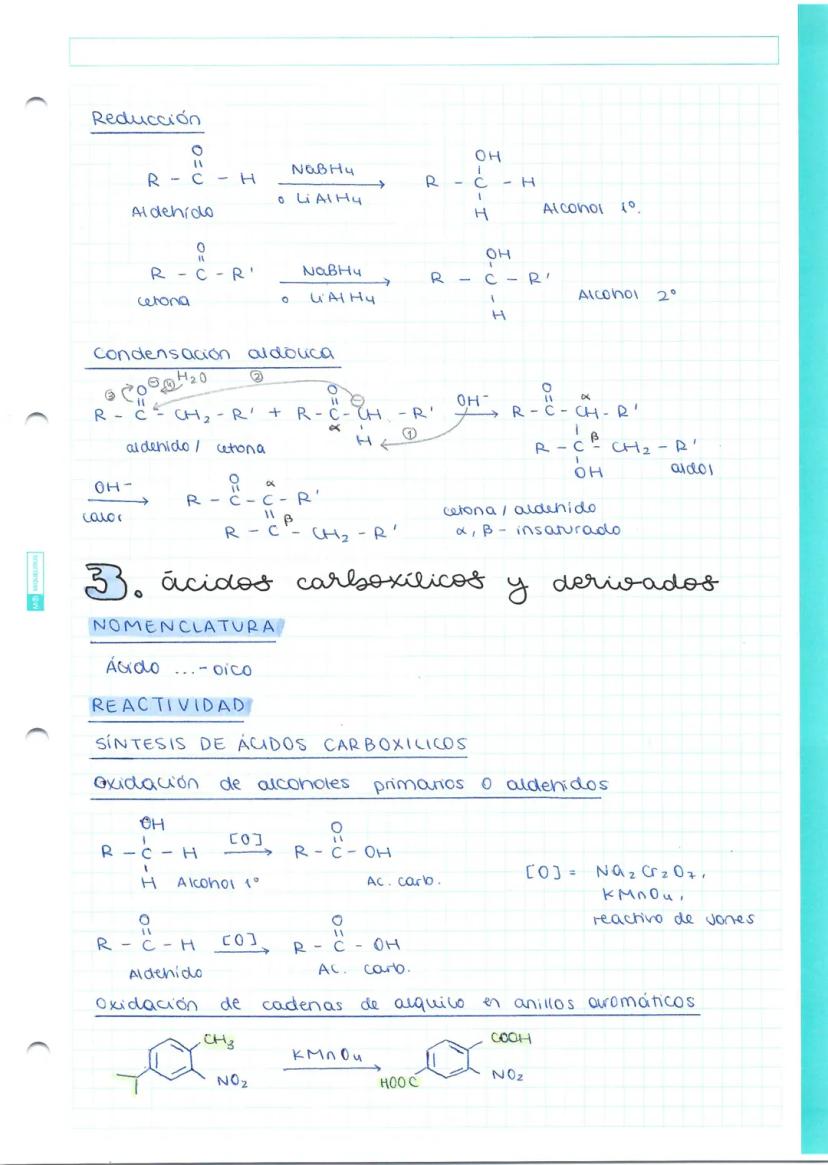 Reducción
O
R - C - H NaBH4 o LiAlH4 OH R - C - H H
Aldehído Alcohol 1º.
O
R - C - R' NaBH4 o LiAlH4 OH R - C - R' H
cetona Alcohol 2º
Condensación aldólica
③ O ⊖ ④ H2O ② O ⊖ OH- O α
R - C - CH2 - R' + R - C - CH - R' R - C - CH - R'
α H ①
aldehido / cetona R - C β - CH2 - R'
OH aldol
OH- calor O α
R - C - C - R' cetona / aldehido
R - C β - CH2 - R' α, β - insaturado
3. ácidos carboxílicos y derivados
NOMENCLATURA
Ácido ...-oico
REACTIVIDAD
SÍNTESIS DE ÁCIDOS CARBOXILICOS
Oxidación de alcoholes primarios o aldehidos
OH O
R - C - H [O] R - C - OH
H Alcohol 1º Ac. carb.
[O] = Na2Cr2O7,
KMnO4,
reactivo de Jones
O O
R - C - H [O] R - C - OH
Aldehído Ac. carb.
Oxidación de cadenas de alquilo en anillos aromáticos
CH3 KMnO4 COOH
NO2 HOOC NO2